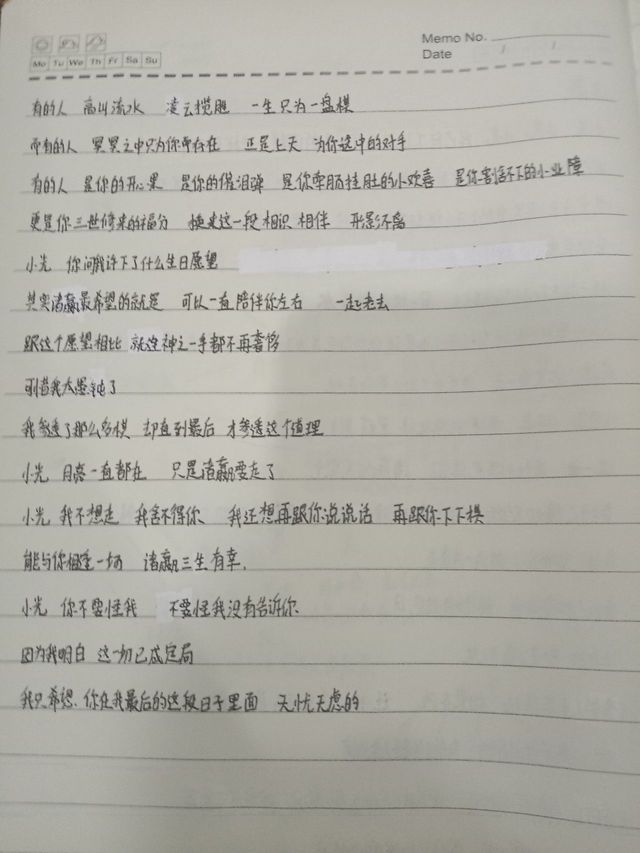 Memo No.
Mo Tu We Th Fr Sa Su
Date / /
有的人 高山流水 凌云揽胜 一生只为一盘棋
而有的人 冥冥之中只为你而存在 正是上天 为你选中的对手
有的人 是你的开心果 是你的催泪弹 是你牵肠挂肚的小欢喜 是你割舍不下的小业障
更是你三世修来的福分 换来这一段相识 相伴 形影不离
小光 你问我许下了什么生日愿望
其实褚嬴最希望的就是 可以一直陪伴你左右 一起老去
跟这个愿望相比 就连神之一手都不再奢侈
别怪我太愚钝了
我参透了那么多棋 却直到最后 才参透这个道理
小光 月亮一直都在 只是褚嬴要走了
小光 我不想走 我舍不得你 我还想再跟你说说话 再跟你下下棋
能与你相逢一场 褚嬴三生有幸.
小光 你不要怪我 不要怪我没有告诉你
因为我明白 这一切已成定局
我只希望 你在我最后的这段日子里面 无忧无虑的